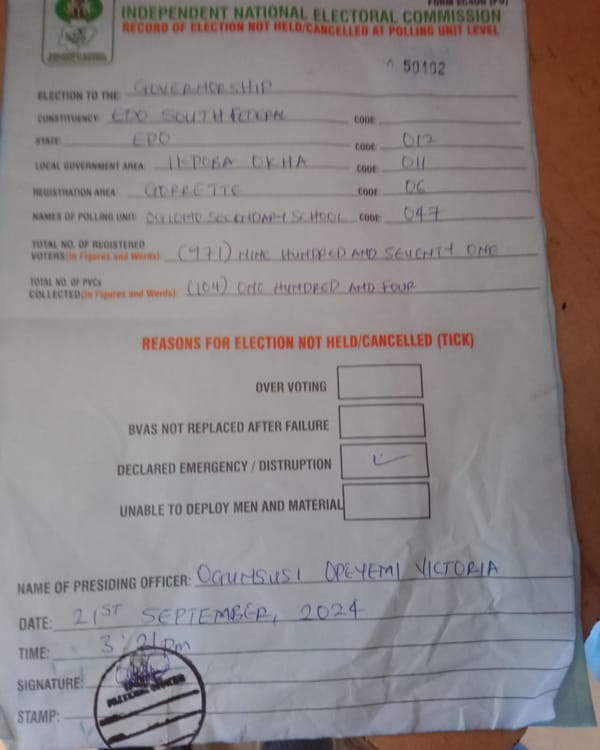 FORM EC40G (PU)
INDEPENDENT NATIONAL ELECTORAL COMMISSION
RECORD OF ELECTION NOT HELD/CANCELLED AT POLLING UNIT LEVEL
50402
ELECTION TO THE: GOVERNORSHIP
CONSTITUENCY: EDO SOUTH FEDERAL CODE:
STATE: EDO CODE: 012
LOCAL GOVERNMENT AREA: IKPOBA OKHA CODE: 011
REGISTRATION AREA: GORRETTE CODE: 06
NAMES OF POLLING UNIT: SECONDARY SCHOOL CODE: 047
TOTAL NO. OF REGISTERED
VOTERS(In Figures and Words) (971) NINE HUNDRED AND SEVENTY ONE
TOTAL NO. OF PVCs
COLLECTED(In Figures and Words) (104) ONE HUNDRED AND FOUR
REASONS FOR ELECTION NOT HELD/CANCELLED (TICK)
OVER VOTING
BVAS NOT REPLACED AFTER FAILURE
DECLARED EMERGENCY / DISTRUPTION
UNABLE TO DEPLOY MEN AND MATERIAL
NAME OF PRESIDING OFFICER: OGUNSUSI OPEYEMI VICTORIA
DATE: 21ST SEPTEMBER, 2024
TIME: 3:21pm
SIGNATURE:
STAMP: